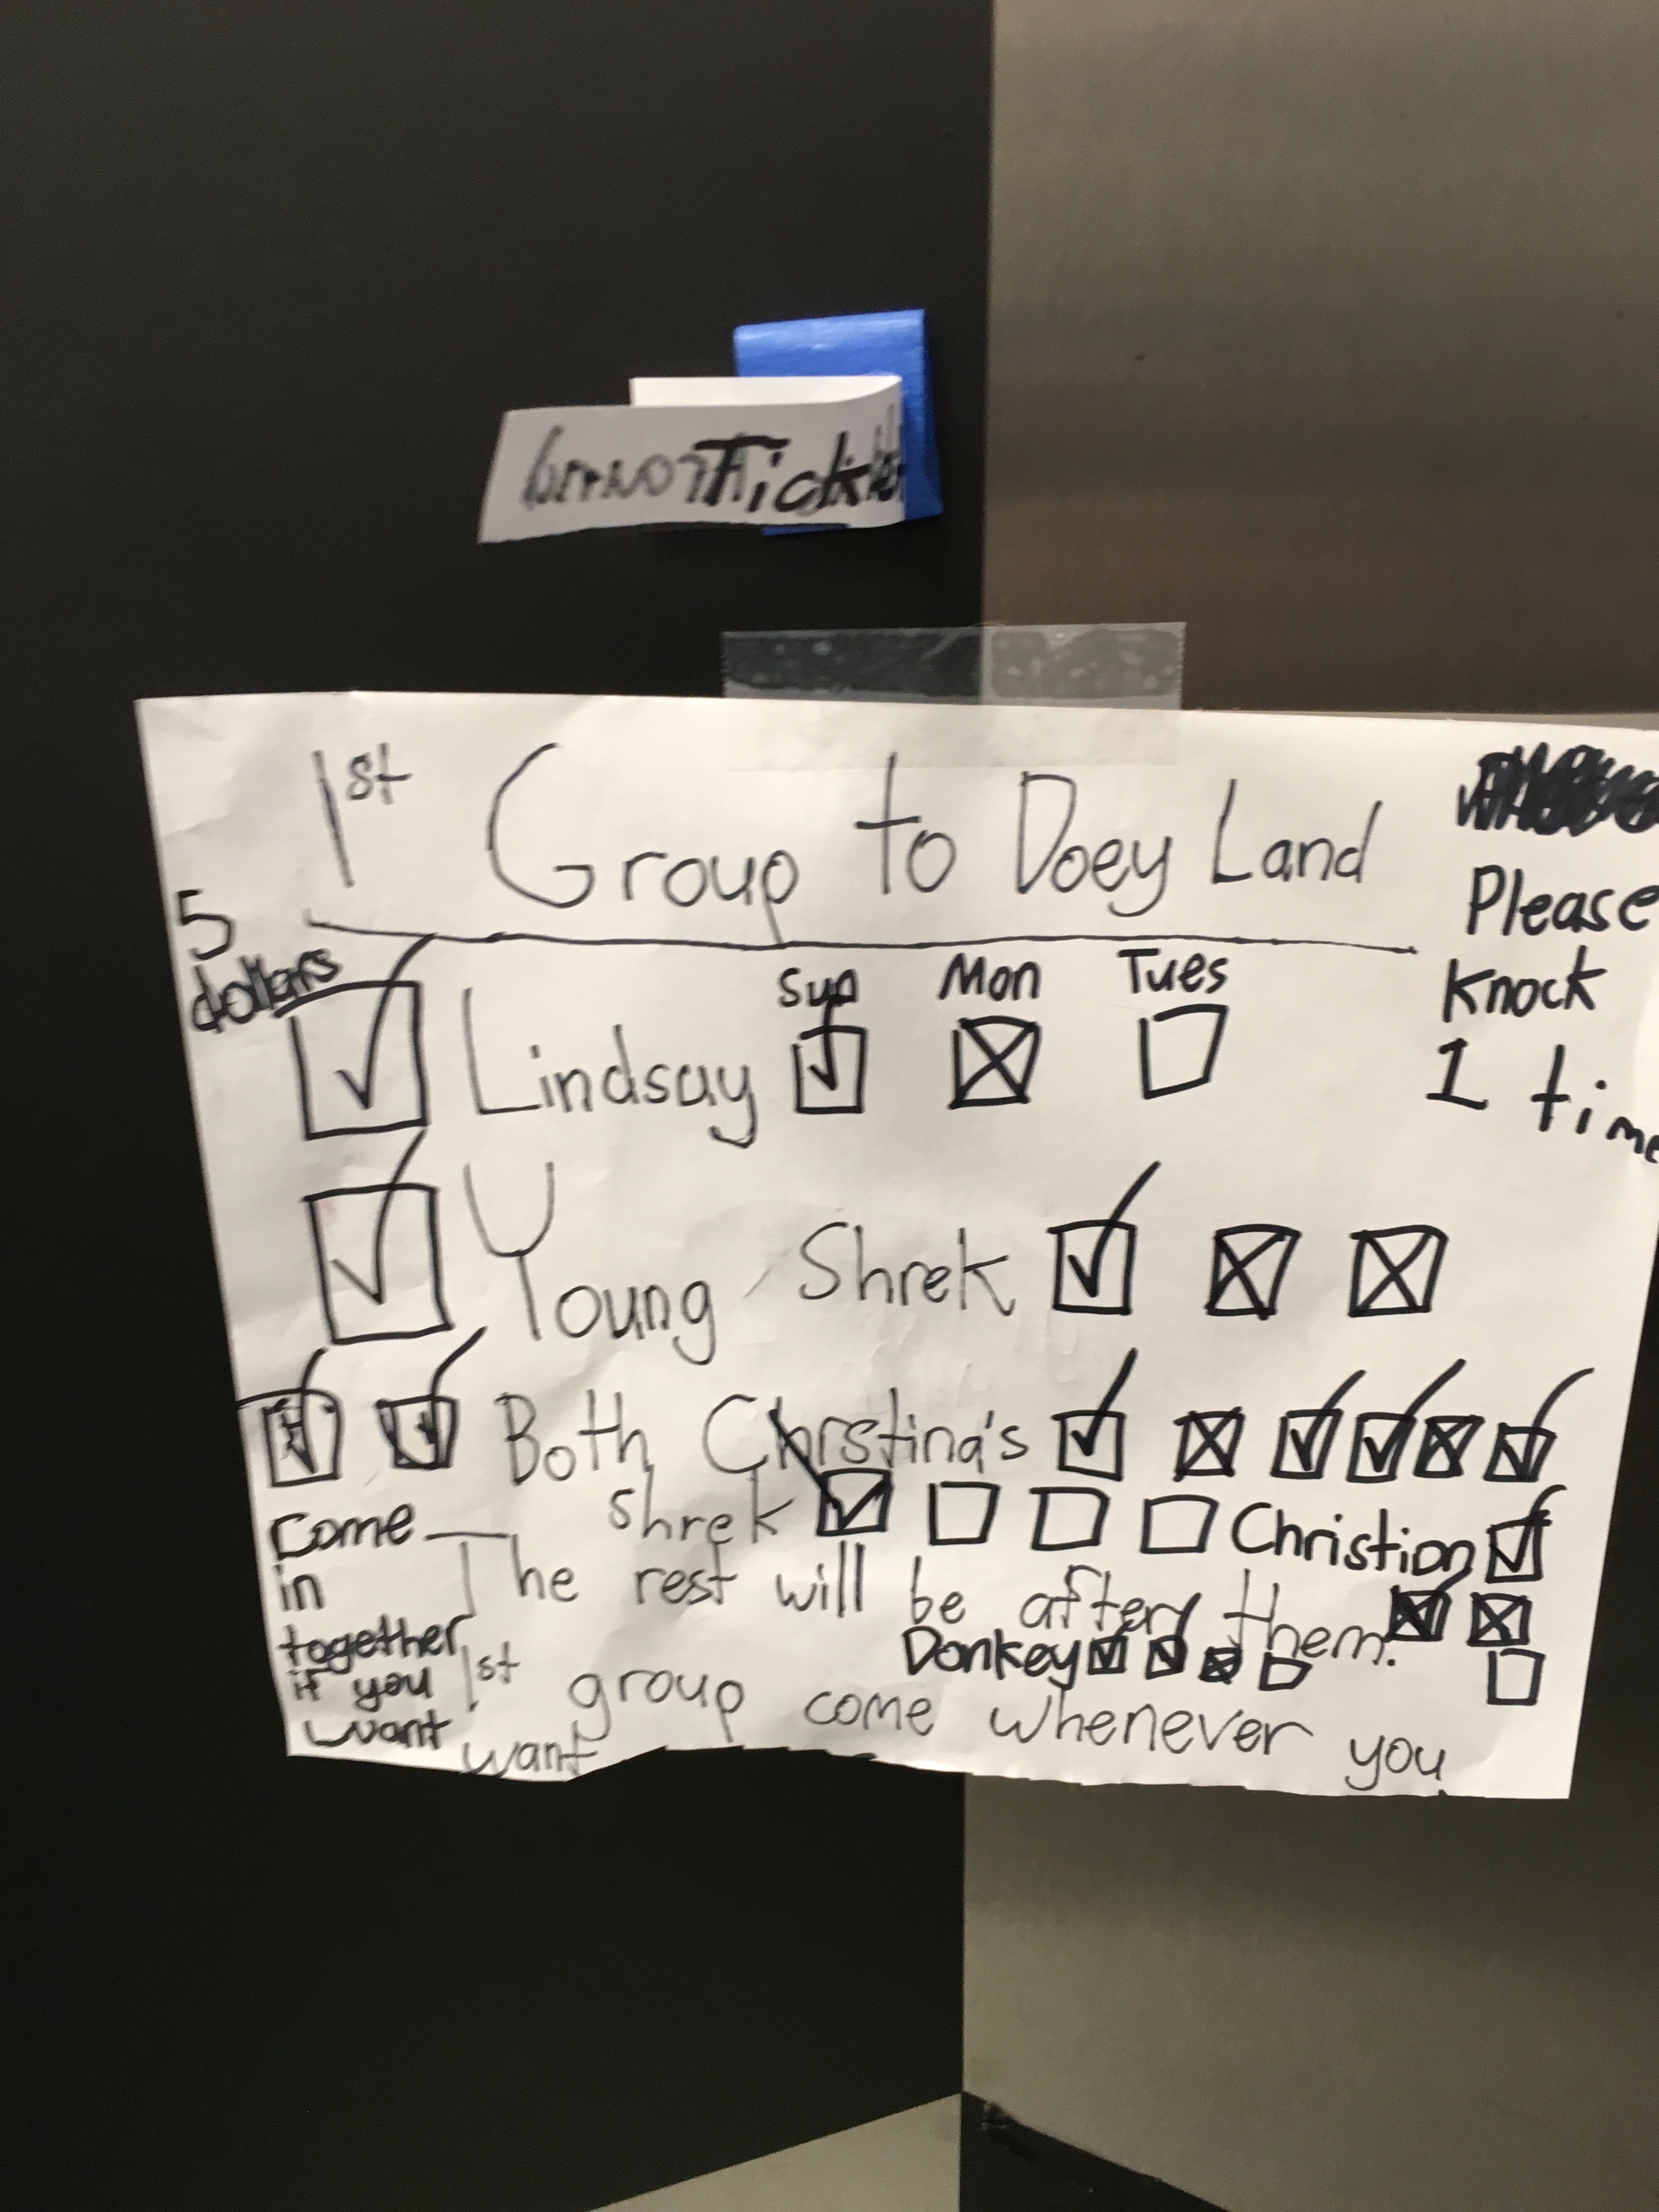 Tick
1st Group to Doey Land
Please
Knock
1 time
5
dollars
Sun Mon Tues
Lindsay
Young Shrek
Both Chrstina's
shrek
Christion
come
in
together
if you
want
The rest will be after them.
Donkey
1st group come whenever you
want